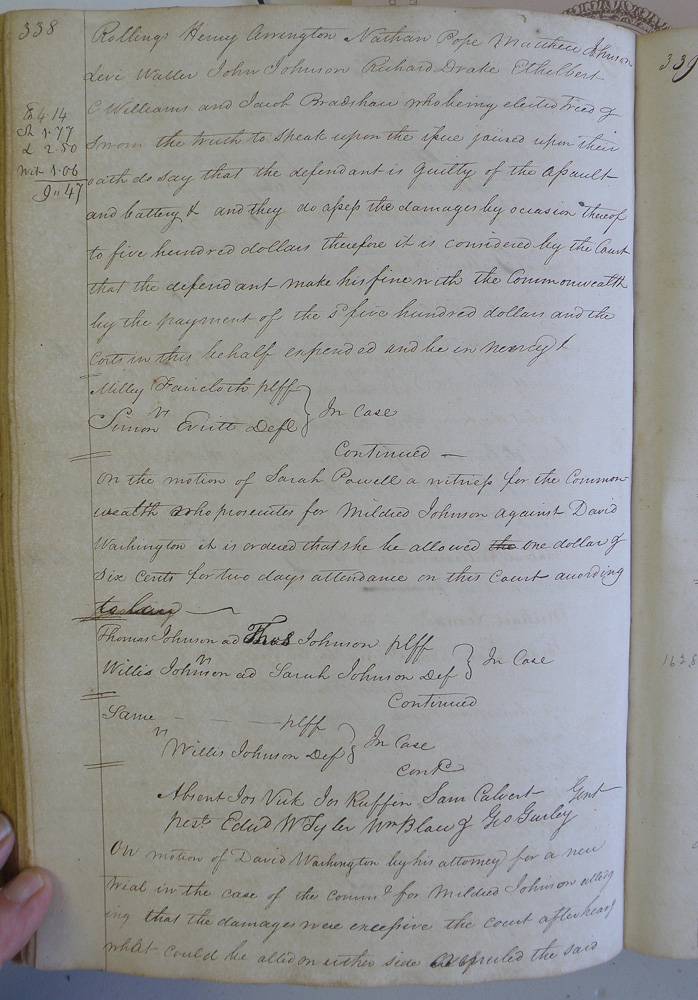 338
Rollings Henry Arrington Nathan Pope Matthew Johnson
Levi Waller John Johnson Richard Drake Ethelbert
C Williams and Jacob Bradshaw who being elected tried &
Sworn the truth to speak upon the issue joined upon their
oath do say that the defendant is guilty of the assault
and battery & and they do assess the damages by occasion thereof
to five hundred dollars therefore it is considered by the Court
that the defendant make his fine with the Commonwealth
by the payment of the sd five hundred dollars and the
Costs in this behalf expended and be in mercy &
4.14
1.77
2.50
Wit 1.06
9"47
Milley Faircloth plff
vs
Simon Evitt Deft
In Case
Continued —
On the motion of Sarah Powell a witness for the Common
wealth who prosecutes for Mildred Johnson against David
Washington it is ordered that she be allowed the one dollar &
Six cents for two days attendance on this Court according
to law
Thomas Johnson ad Thos Johnson plff
vs
Willis Johnson ad Sarah Johnson Def
In Case
Continued
Same — — plff
vs
Willis Johnson Def
In Case
Contd
Absent Jos Vick Jos Ruffin Sam Calvert Gent
prest Edwd W Tyler Wm Blow & Geo Gurley
On motion of David Washington by his attorney for a new
trial in the case of the Commth for Mildred Johnson alledg
ing that the damages were excessive the court after hearg
what could be alled on either side overruled the said
339